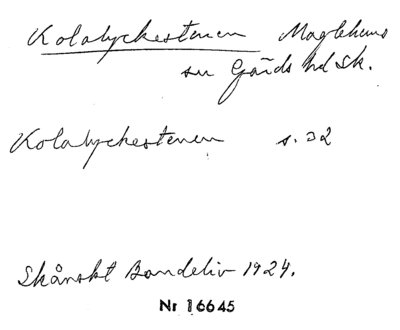 Kolalyckestenen Maglehems
sn Gärds hd Sk.
Kolalyckestenen s. 32
Skånskt Bondeliv 1924.
Nr 16645